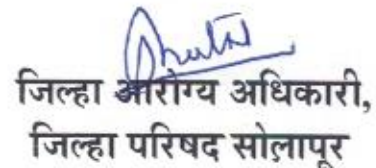 जिल्हा आरोग्य अधिकारी,
जिल्हा परिषद सोलापूर